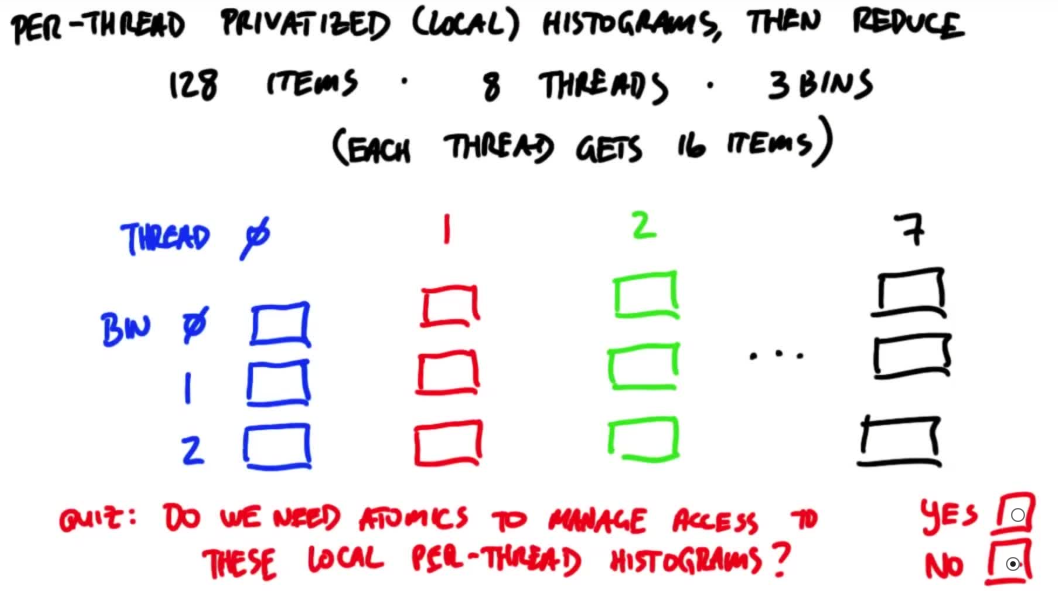 PER-THREAD PRIVATIZED (LOCAL) HISTOGRAMS, THEN REDUCE
128 ITEMS · 8 THREADS · 3 BINS
(EACH THREAD GETS 16 ITEMS)
THREAD 0 1 2 7
BIN 0
1
...
2
QUIZ: DO WE NEED ATOMICS TO MANAGE ACCESS TO YES
THESE LOCAL PER-THREAD HISTOGRAMS? NO